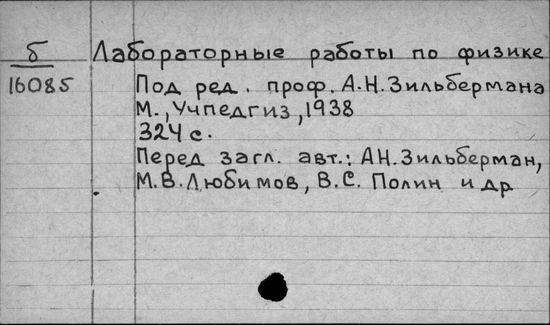 б Лабораторные работы по физике
16085 Под ред. проф. А.Н.Зильбермана
М., Учпедгиз, 1938
324 с.
Перед загл. авт.: АН.Зильберман,
М.В.Любимов, В.С. Полин и др